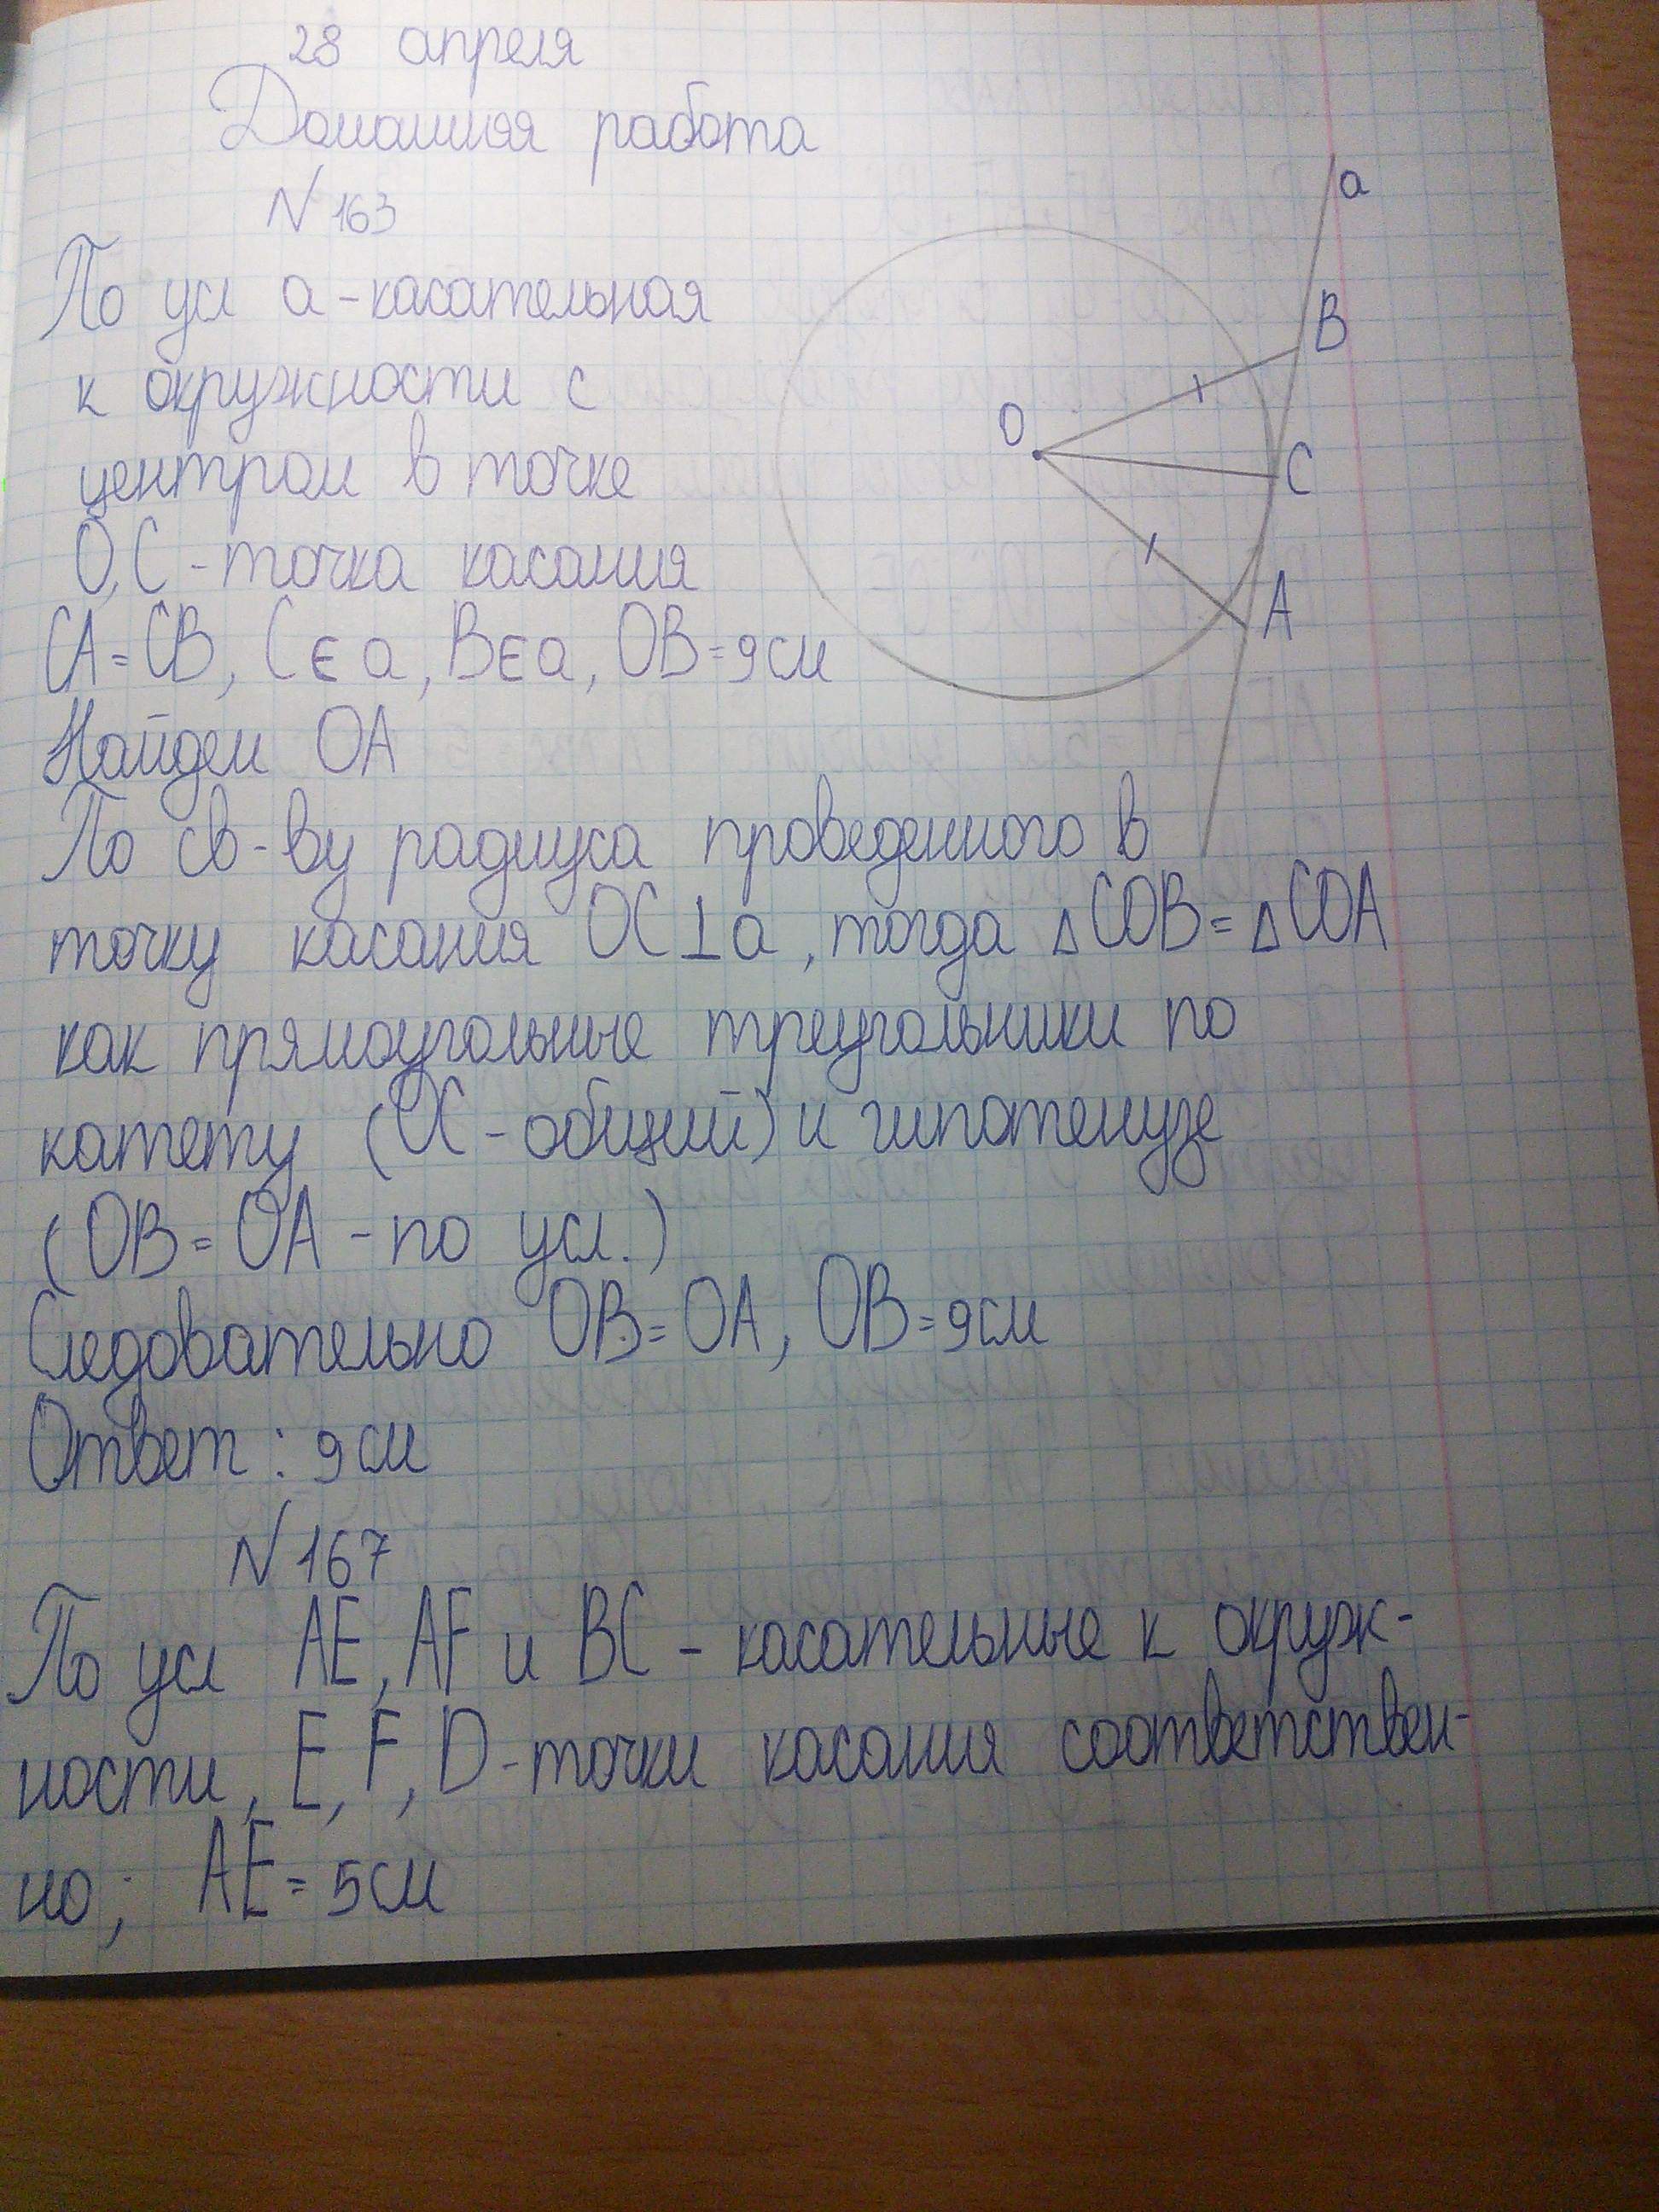 28 апреля
Домашняя работа
N 163
По усл а - касательная
к окружности с
центром в точке
О, С - точка касания
СА = СВ, С ∈ а, В ∈ а, ОВ = 9 см
Найдем ОА
По св-ву радиуса проведенного в
точку касания ОС ⊥ а, тогда △СОВ = △СОА
как прямоугольные треугольники по
катету (ОС - общий) и гипотенузе
(ОВ = ОА - по усл.)
Следовательно ОВ = ОА, ОВ = 9 см
Ответ : 9 см
N 167
По усл АЕ, AF и ВС - касательные к окруж-
ности, E, F, D - точки касания соответствен-
но; АЕ = 5 см
а
В
О
С
А